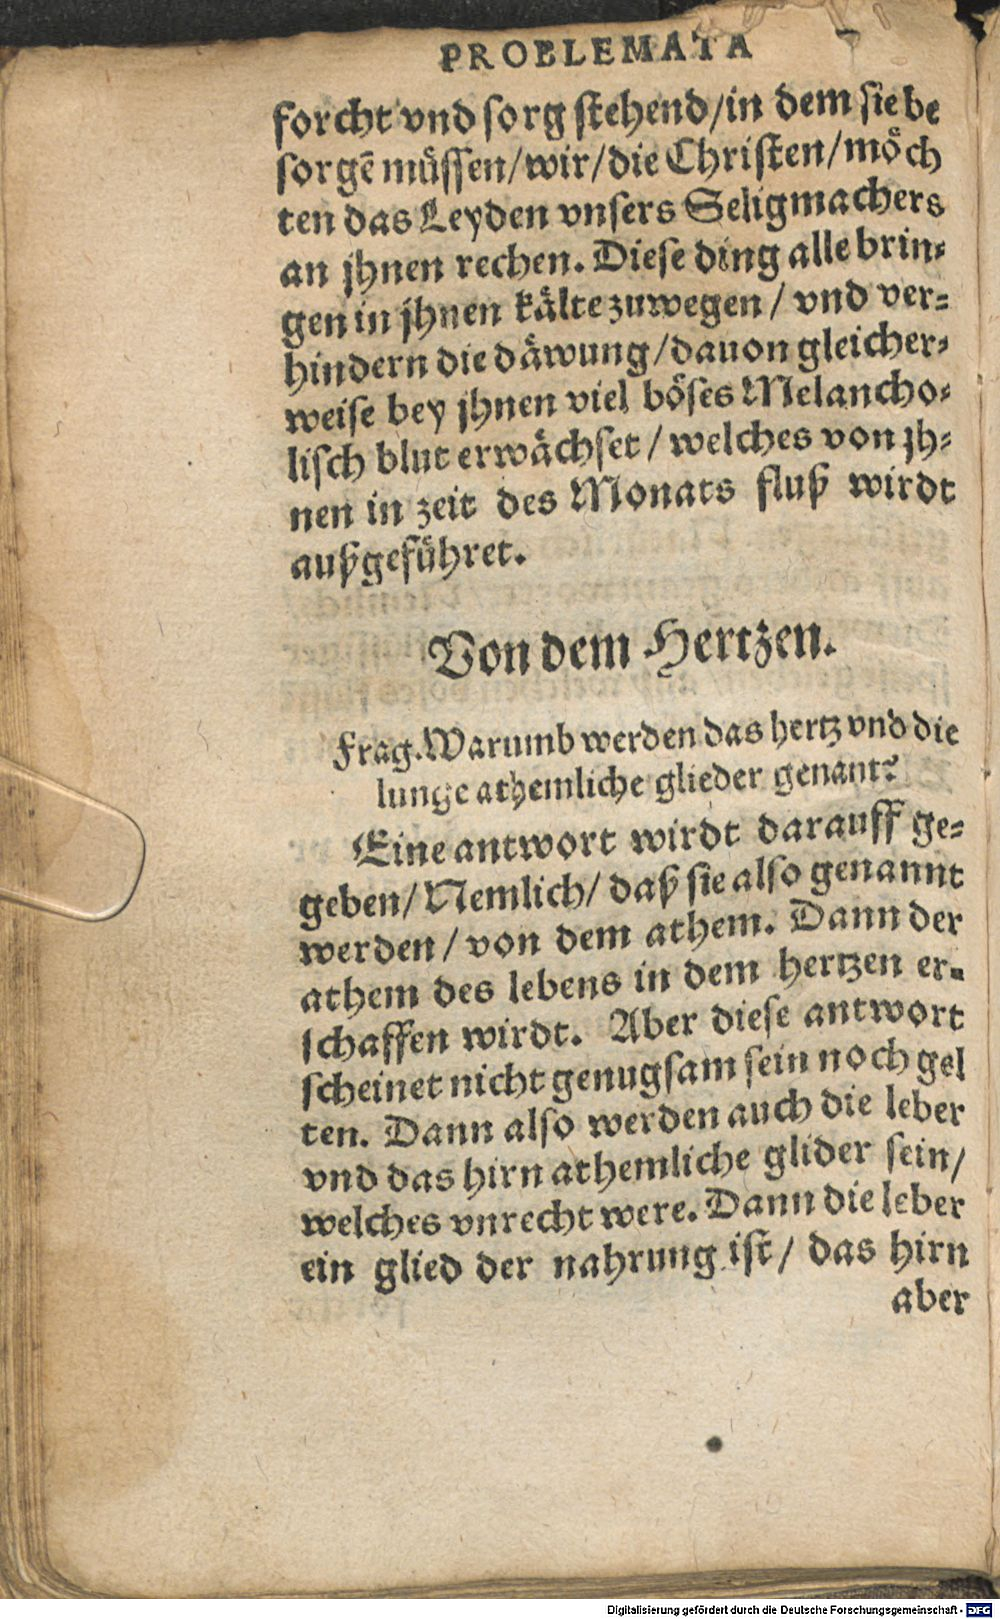 PROBLEMATA
forcht vnd sorg stehend/in dem sie be
sorgē müssen/wir/die Christen/möch
ten das Leyden vnsers Seligmachers
an jhnen rechen. Diese ding alle brin-
gen in jhnen kälte zuwegen / vnd ver-
hindern die däwung/dauon gleicher-
weise bey jhnen viel böses Melancho-
lisch blut erwächset / welches von jh-
nen in zeit des Monats fluß wirdt
außgeführet.
Von dem Hertzen.
Frag. Warumb werden das hertz vnd die
lunge athemliche glieder genant?
Eine antwort wirdt darauff ge-
geben/ Nemlich/ daß sie also genannt
werden / von dem athem. Dann der
athem des lebens in dem hertzen er-
schaffen wirdt. Aber diese antwort
scheinet nicht genugsam sein noch gel
ten. Dann also werden auch die leber
vnd das hirn athemliche glider sein/
welches vnrecht were. Dann die leber
ein glied der nahrung ist / das hirn
aber
Digitalisierung gefördert durch die Deutsche Forschungsgemeinschaft - DFG